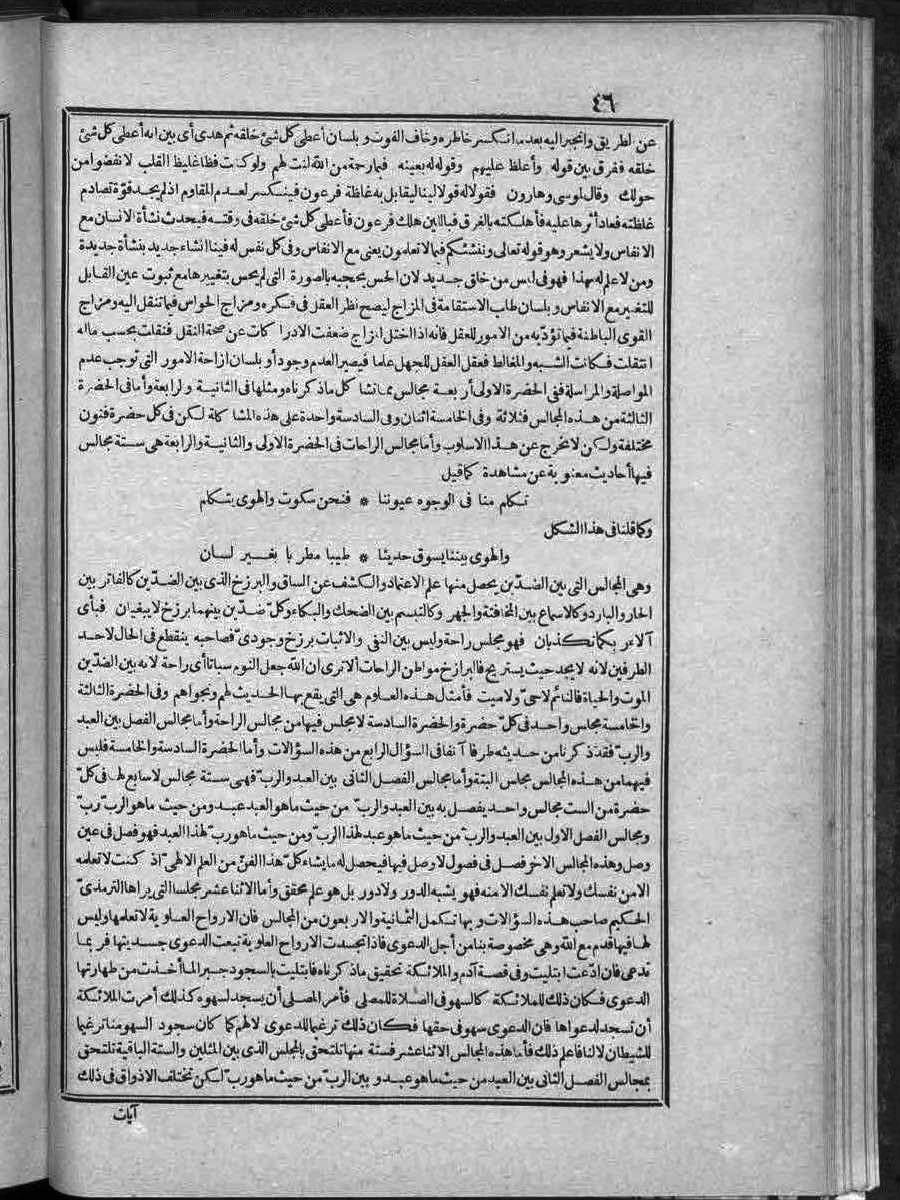 ٤٦
عن الطريق وانجبر اليه بعد ما انكسر خاطره وخاف الفوت و بلسان أعطى كل شئ خلقه ثم هدى أى بين انه أعطى كل شئ
خلقه ففرق بين قوله وأغلظ عليهم وقوله له بعينه فبمارحمة من الله لنت لهم ولو كنت فظا غليظ القلب لانفضوا من
حولك وقال لموسى وهارون فقولا له قولا لينا ليقابل به غلظة فرعون فينكسر لعدم المقاوم اذ لم يجد قوّة تصادم
غلظته فعاد أثرها عليه فأهلكته بالغرق فبالين هلك فرعون فأعطى كل شئ خلقه فى وقته فيحدث نشأة الانسان مع
الانفاس ولا يشعر وهو قوله تعالى وننشئكم فيما لا تعلمون يعنى مع الانفاس وفى كل نفس له فينا انشاء جديد بنشأة جديدة
ومن لا علم له بهذا فهو فى لبس من خلق جديد لان الحس يحجبه بالصورة التى لم يحس بتغييرها مع ثبوت عين القابل
للتغيير مع الانفاس و بلسان طلب الاستقامة فى المزاج ليصح نظر العقل فى فكره ومزاج الحواس فيما تنقل اليه ومزاج
القوى الباطنة فيما تؤدّيه من الامور للعقل فانه اذا اختل المزاج ضعفت الادراكات عن صحة النقل فنقلت بحسب ما اليه
انتقلت فكانت الشبه والمغالط فعقل العقل للجهل علما فيصير العدم وجودا و بلسان ازاحة الامور التى توجب عدم
المواصلة والمراسلة ففى الحضرة الاولى أربعة مجالس مما نشا كل ماذكرناه ومثلها فى الثانية والرابعة وأما فى الحضرة
الثالثة من هذه المجالس فثلاثة وفى الخامسة اثنان وفى السادسة واحدة على هذه المشاكلة لكن فى كل حضرة فنون
مختلفة ولكن لا تخرج عن هذا الاسلوب وأما مجالس الراحات فى الحضرة الاولى والثانية والرابعة هى ستة مجالس
فيها أحاديث معنوية عن مشاهدة كما قيل
تكلم منا فى الوجوه عيوننا * فنحن سكوت والهوى يتكلم
وكما قلنا فى هذا الشكل
والهوى بيننا يسوق حديثا * طيبا مطربا بغير لسان
وهى المجالس التى بين الضدّين يحصل منها علم الاعتماد والكشف عن الساق والبرزخ الذى بين الضدّين كالفاتر بين
الحار والبارد وكالاسماع بين المخافتة والجهر وكالتبسم بين الضحك والبكاء وكلّ ضدّين بينهما برزخ لا يبغيان فبأى
آلاء ربكما تكذبان فهو مجلس راحة وليس بين النفى والاثبات برزخ وجودىّ فصاحبه ينقطع فى الحال لاحد
الطرفين لانه لا يجد حيث يستريح فالبرازخ مواطن الراحات ألا ترى ان الله جعل النوم سباتا أى راحة لانه بين الضدّين
الموت والحياة فالنائم لا حىّ ولا ميت فأمثال هذه العلوم هى التى يقع بها الحديث لهم ونجواهم وفى الحضرة الثالثة
والخامسة مجلس واحد فى كلّ حضرة والحضرة السادسة لا مجلس فيها من مجالس الراحة وأما مجالس الفصل بين العبد
والربّ فقد ذكرنا من حديثه طرفا آنفا فى السؤال الرابع من هذه السؤالات وأما الحضرة السادسة والخامسة فليس
فيهما من هذه المجالس مجلس البتة وأما مجالس الفصل الثانى بين العبد والربّ فهى ستة مجالس لا سابع لها فى كلّ
حضرة من الست مجالس واحد يفصل به بين العبد والربّ من حيث ما هو العبد عبد ومن حيث ما هو الربّ ربّ
ومجالس الفصل الاول بين العبد والربّ من حيث ما هو عبد لهذا الربّ ومن حيث ما هو ربّ لهذا العبد فهو فصل فى عين
وصل وهذه المجالس الاخر فصل فى فصول لا وصل فيها فيحصل له ما يشاء كلّ هذا الفنّ من العلم الالهىّ اذ كنت لا تعلمه
الا من نفسك ولا تعلم نفسك الا منه فهو يشبه الدور ولا دور بل هو علم محقق وأما الاثنا عشر مجلسا التى يراها الترمذىّ
الحكيم صاحب هذه السؤالات وبها تكمل الثمانية والاربعون من المجالس فان الارواح العلوية لا تعلمها وليس
لها فيها قدم مع الله وهى مخصوصة بنا من أجل الدعوى فاذا تجسدت الارواح العلوية تبعت الدعوى جسديتها فربما
تدعى فان ادّعت ابتليت وفى قصة آدم والملائكة تحقيق ما ذكرناه فابتليت بالسجود جبرا لما أخذت من طهارتها
الدعوى فكان ذلك للملائكة كالسهو فى الصلاة للمصلى فأمر المصلى أن يسجد لسهوه كذلك أمرت الملائكة
أن تسجد لدعواها فان الدعوى سهو فى حقها فكان ذلك ترغيما للدعوى لا لهم كما كان سجود السهو منا ترغيما
للشيطان لا لنا فاعلم ذلك فأما هذه المجالس الاثنا عشر فستة منها تلتحق بالمجلس الذى بين المثلين والستة الباقية تلتحق
بمجالس الفصل الثانى بين العبد من حيث ما هو عبد و بين الربّ من حيث ما هو ربّ لكن تختلف الاذواق فى ذلك
آيات